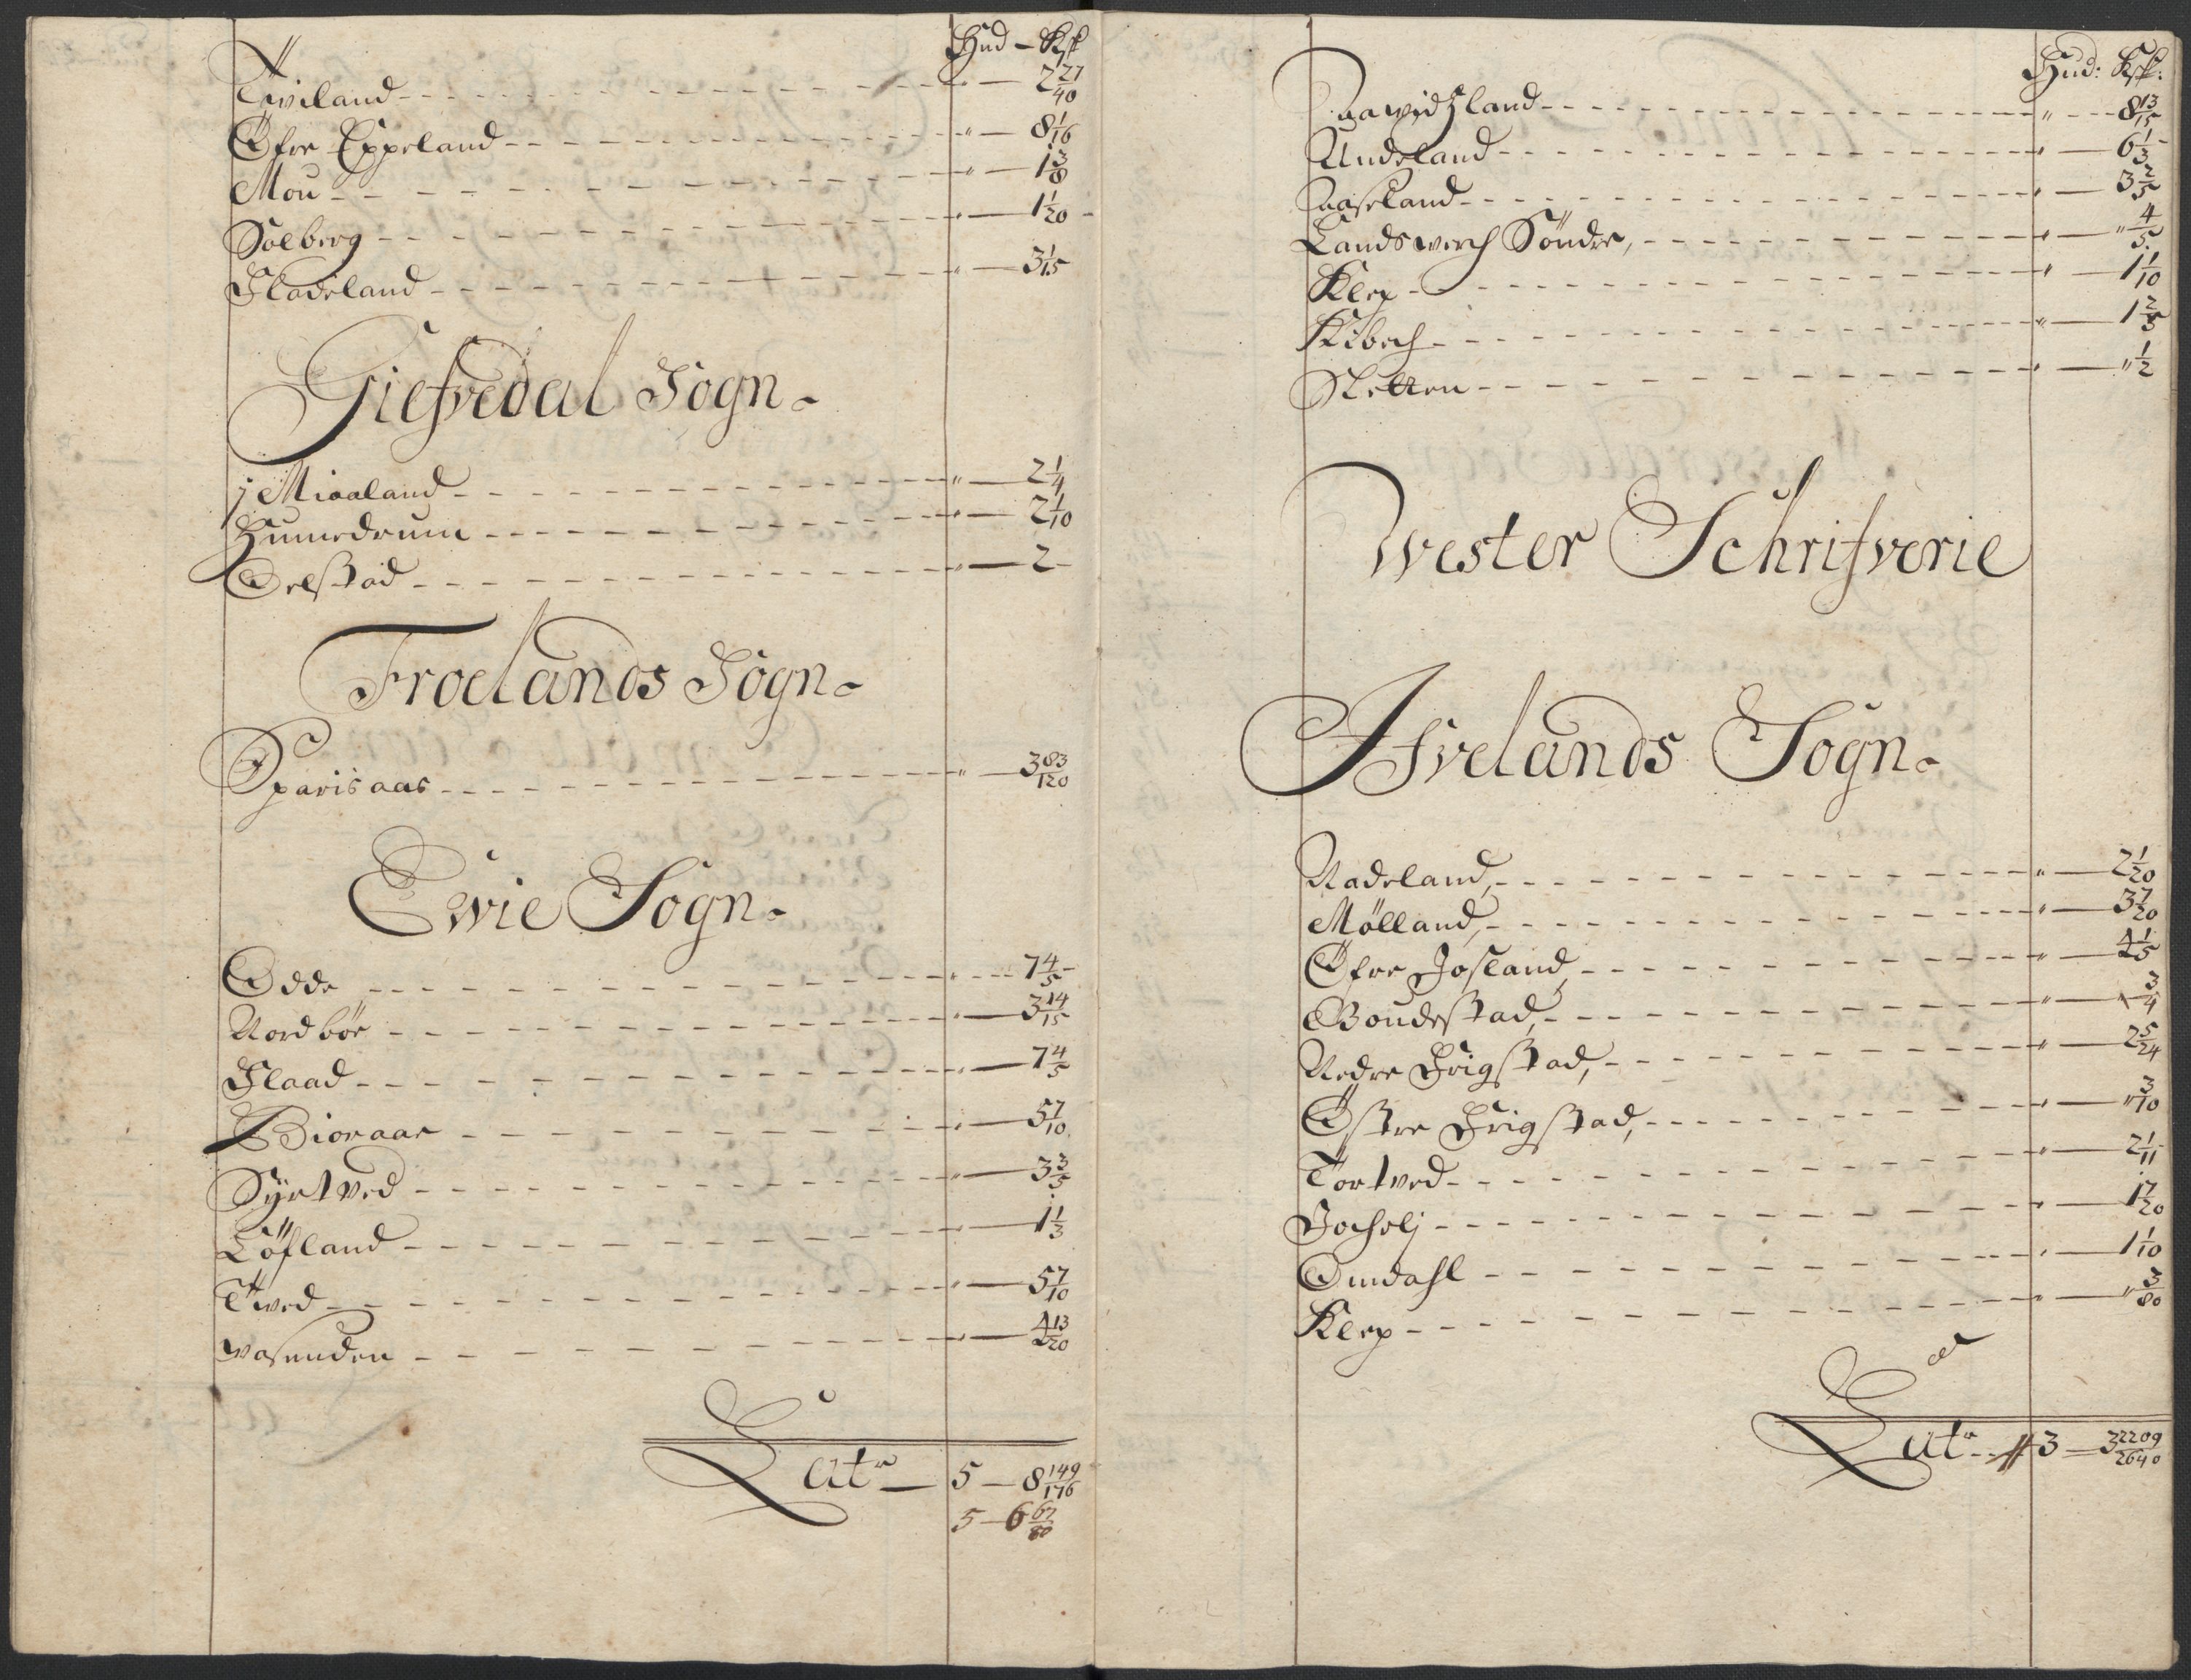 Hud – Ksk
Twiland – " – 2 27/40
Öfre Eppeland – " – 8 1/16
Mou – " – 1 3/8
Solberg – " – 1 1/20
Fladeland – " – 3 1/15
Giefvedal Sogn.
j Mioaland – " – 2 1/4
Humedrum – " – 2 1/10
Oelstad – " – 2
Froelands Sogn.
Sparisaas – " – 3 83/120
Ewie Sogn.
Odde – " – 7 4/5
Nordbör – " – 3 14/15
Flaad – " – 7 4/5
Bioraae – " – 5 7/10
Syrtved – " – 3 3/5
Löfland – " – 1 1/3
Twed – " – 5 7/10
Wasenden – " – 4 13/20
Lat – 5 – 8 149/176
5 – 6 67/80
Hud: Ksk:
Daawidzland – " – 8 13/15
Undeland – " – 6 1/3
Aaseland – " – 3 2/5
Landswerch Söndre, – " – " 4/5
Klep – " – 1 1/10
Kibech – " – 1 2/5
Sletten – " – " 1/2
Wester Schrifverie
Ifvelands Sogn.
Nadeland, – " – 2 1/20
Mölland, – " – 3 7/20
Öfre Josland, – " – 4 1/5
Boudestad, – " – " 3/4
Nedre Frigstad, – " – 2 5/24
Östre Frigstad, – " – " 3/10
Tortved – " – 2 1/11
Jocholj – " – 1 7/20
Omdahl – " – 1 1/10
Klep – " – " 3/80
Lat – 3 – 3 2209/2640